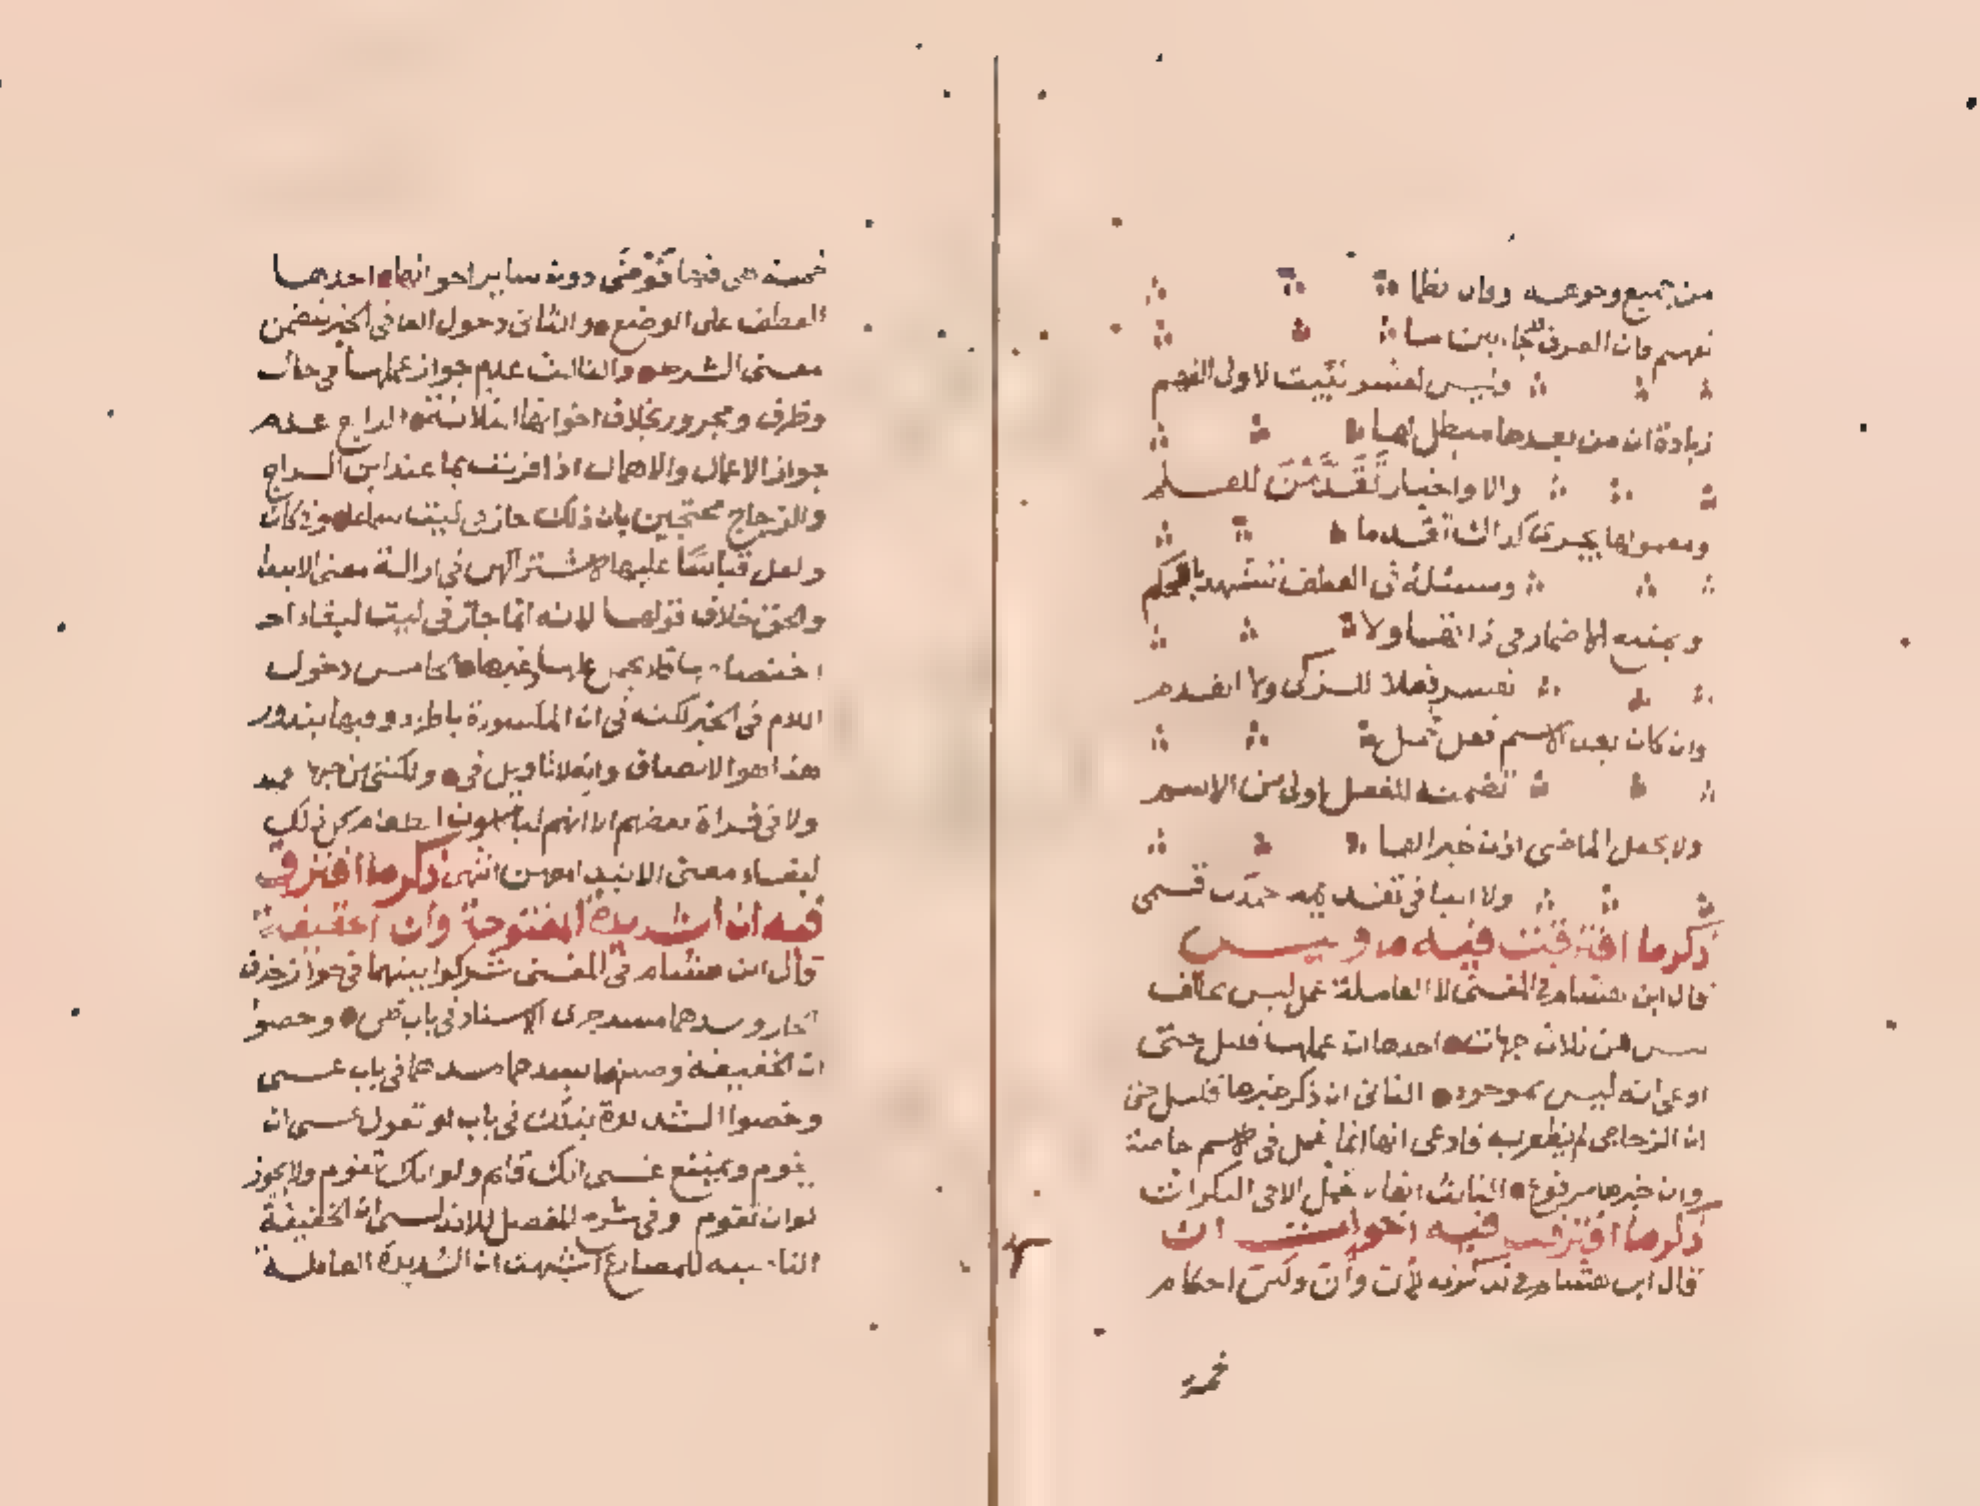 من جميع وجوهه وقال نظما
تفهم فان الحرف قد جاء بيننا
وليس لعشر تثبت لاولى الفهم
زيادة ان من بعدها مبطل لها
والا واخبار تقدمن للعلم
ومعمولها يجرى كذاك تقدما
ومسئلة فى العطف تشهد بالحكم
ويمتنع الاضمار فى ذاتها ولا
تفسر فعلا للزكى ولا القدم
وان كان بعد الاسم فعل
تضمنه للفعل اولى من الاسم
ولا يجعل الماضى اذن خبرا لها
ولا ايها فى
ذكر ما افترقت فيه ما وليس
قال ابن هشام فى المغنى لا العاملة عمل ليس تخالف
ليس من ثلاث جهات احدها ان عملها قليل حتى
ادعى انه ليس بموجود الثانى ان ذكر خبرها قليل حتى
ان الزجاجى لم يظفر به فادعى انها انما تعمل فى الاسم خاصة
وان خبرها مرفوع الثالث انها لا تعمل الا فى النكرات
ذكر ما افترقت فيه اخوات ان
قال ابن هشام فى تذكرته لأن وأن ولكن احكام
خمسة
خمسة هى فيها فوضى دون ساير اخواتها احدها
العطف على الموضع والثانى دخول الفا فى الخبر لتضمن
معنى الشرط والثالث عدم جواز عملها فى حال
وظرف ومجرور بخلاف اخواتها الثلاثة الرابع عدم
جواز الاعمال والاهمال اذا اقترنت بما عند ابن السراج
والزجاج محتجين بان ذلك جاز فى ليت سماعا وفى كان
ولعل قياسا عليها لاشتراكهن فى ازالة معنى الابتدا
والحق خلاف قولهما لانه انما جاز فى ليت لبقاء
اختصاصها فلا يحمل عليها غيرها الخامس دخول
اللام فى الخبر لكنه فى ان المكسورة باطراد وفيها بندور
هذا هو الانصاف وان لا تاويل فى ولكننى من حبها
ولا فى قراة بعضهم الا انهم لياكلون الطعام كل ذلك
لبقاء معنى الابتدا معهن انتهى ذكر ما افترق
فيه ان الشديدة المفتوحة وان الخفيفة
قال ابن هشام فى المغنى شركوا بينهما فى جواز حذف
الجار وسدهما مسد جزى الاسناد فى باب ظن وخصوا
ان الخفيفة وصلتها بسدهما مسدهما فى باب عسى
وخصوا الشديدة بذلك فى باب لو تقول عسى ان
يقوم ويمتنع عسى انك قايم ولو انك تقوم ولا يجوز
لو ان تقوم وفى شرح المفصل للاندلسى ان الخفيفة
الناصبة للمضارع اشبهت ان الشديدة العاملة